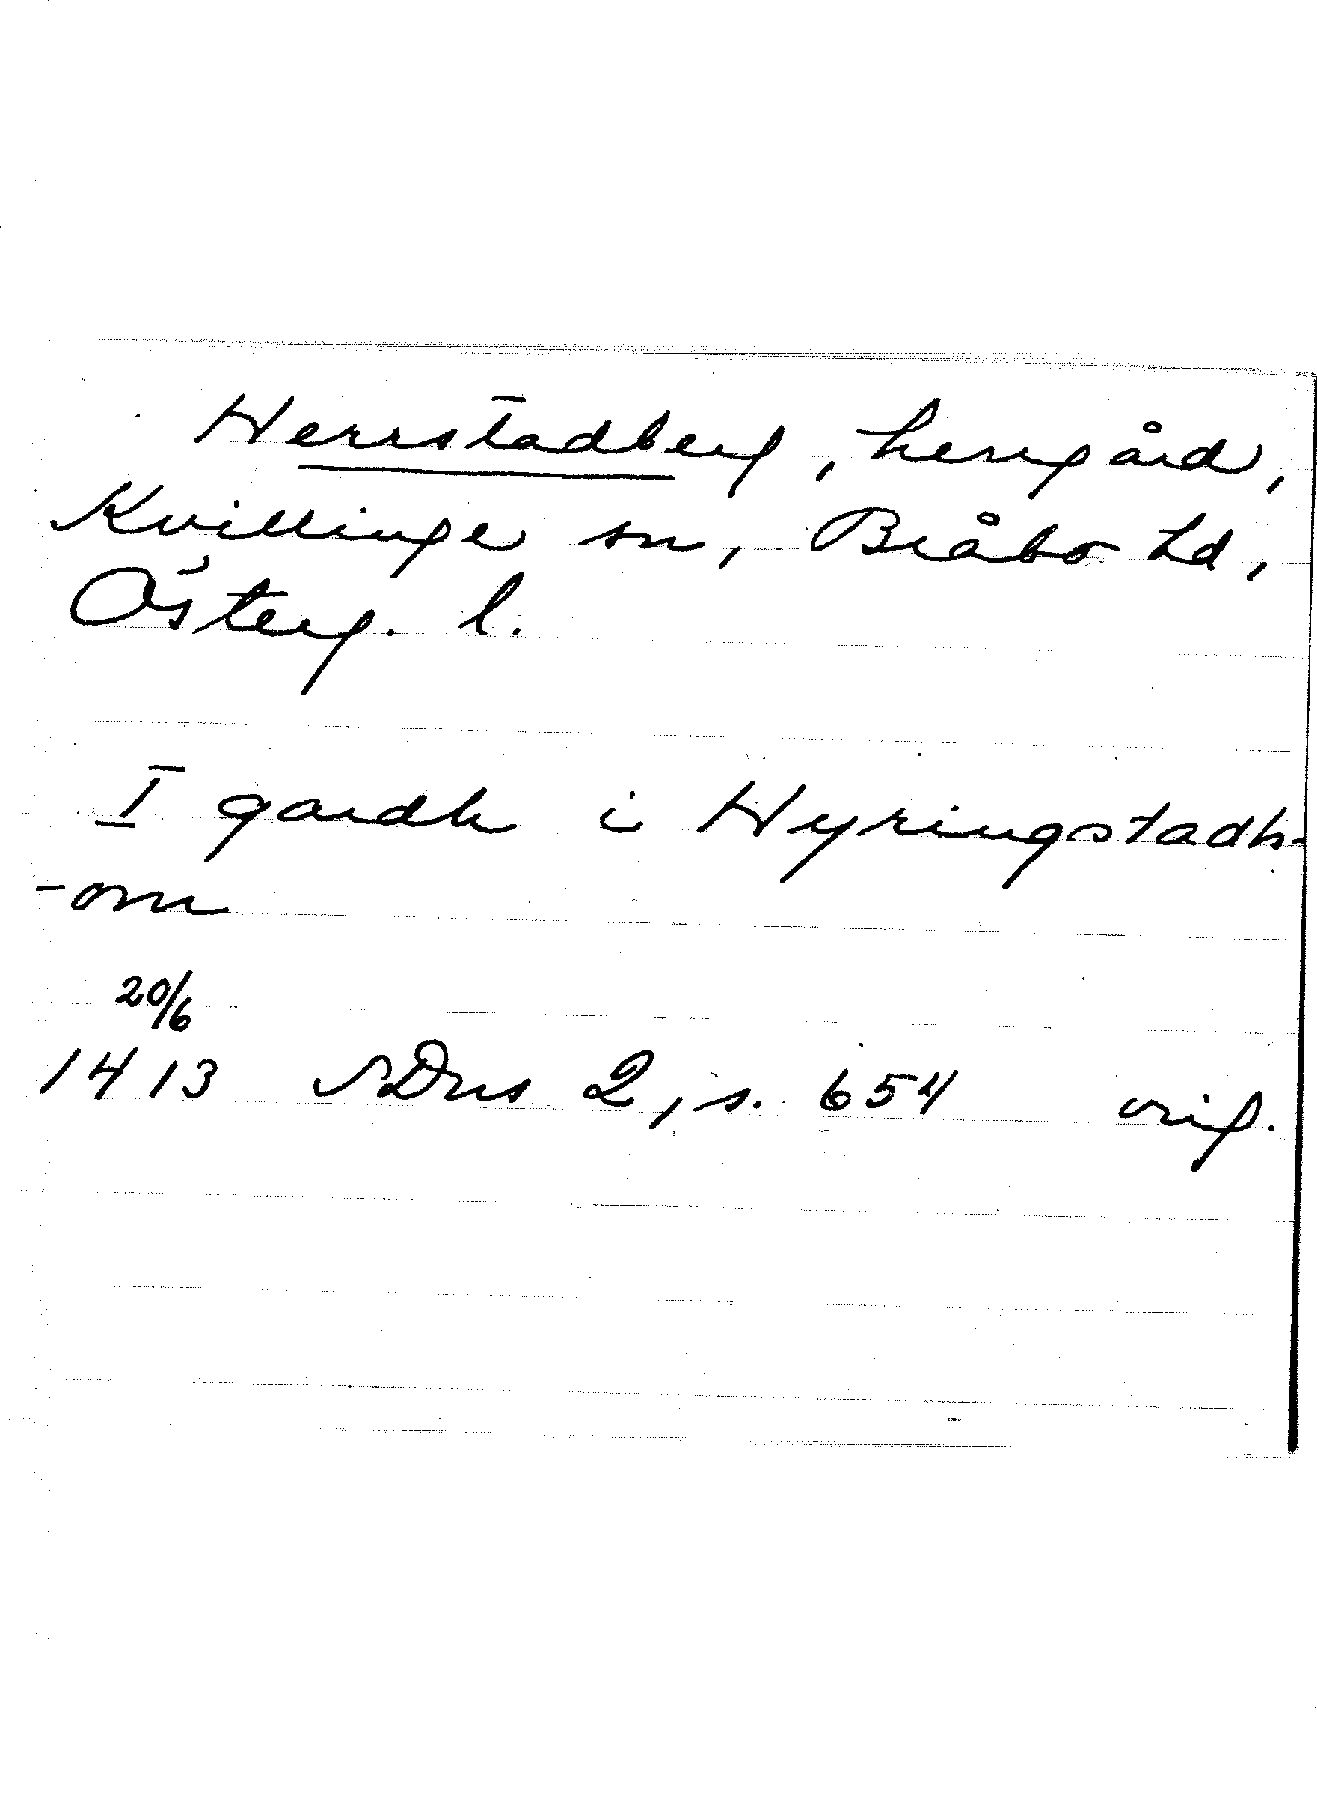 Herrstadberg, herrgård,
Kvillinge sn, Bråbo hd,
Österg. l.
I gardh i Hyringstadh-
-om
20/6
1413 SDns 2, s. 654 orig.